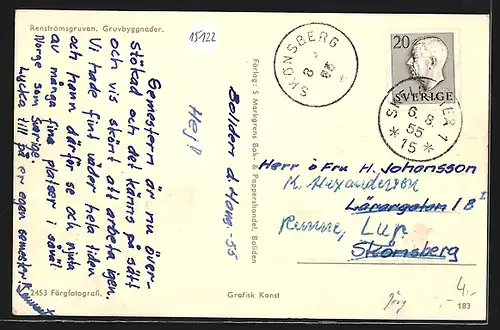 Renströmsgruvan. Gruvbyggnader.
15122
Hej!
Boliden d. 4 aug. -55
Semestern är nu över-
stökad och det känns på sätt
och vis skönt att arbeta igen.
Vi hade fint väder hela tiden
och hann därför se och njuta
av många fina platser i såväl
Norge som Sverige.
Lycka till på er egen semester
2453 Färgfotografi.
Förlag: S. Markgrens Bok- & Pappershandel, Boliden
Grafisk Konst
SKÖNSBERG
8
55
20
SVERIGE
6. 8
55
* 15 *
Herr o Fru H. Johansson
K. Alexandersson
Lärargatan 1 B I
Remme, Lur
Skönsberg
4,-
183